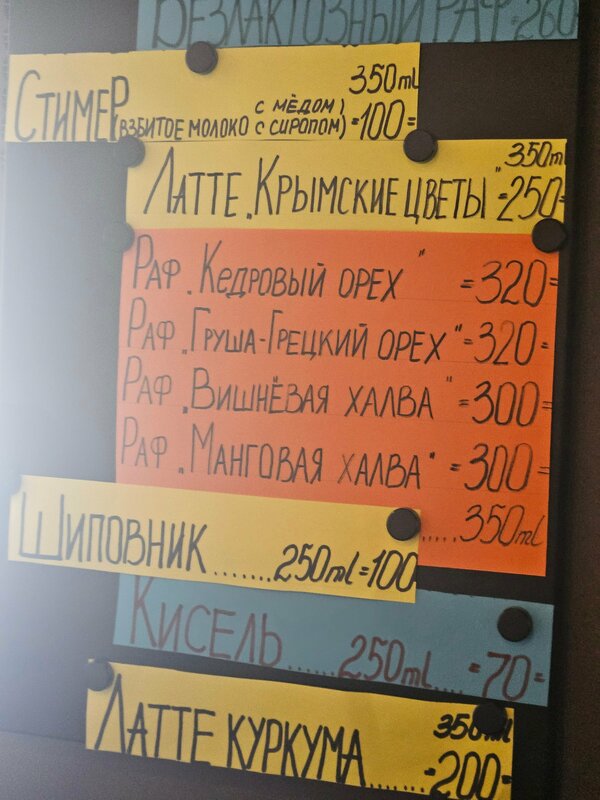 БЕЗЛАКТОЗНЫЙ РАФ =260=
350ml
СТИМЕР с МЁДОМ,
(ВЗБИТОЕ МОЛОКО с СИРОПОМ) =100=
350ml
ЛАТТЕ „КРЫМСКИЕ ЦВЕТЫ" =250=
РАФ „КЕДРОВЫЙ ОРЕХ" =320=
РАФ „ГРУША-ГРЕЦКИЙ ОРЕХ" =320=
РАФ „ВИШНЁВАЯ ХАЛВА" =300=
РАФ „МАНГОВАЯ ХАЛВА" =300=
.....350ml
ШИПОВНИК.......250ml=100
КИСЕЛЬ.....250ml....=70=
350ml
ЛАТТЕ КУРКУМА......=200=